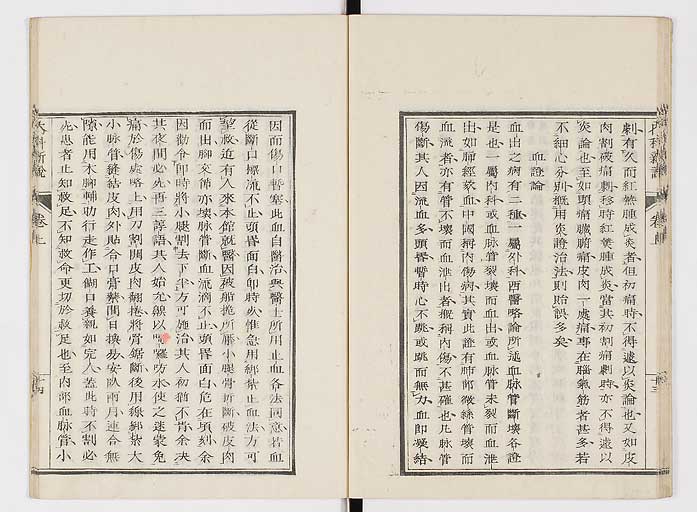 劇有久而紅熱腫成炎者但初痛時不得遽以炎論也又如皮
肉割破痛劇移時紅熱腫成炎當其初割痛劇時亦不得遽以
炎論也至如頭痛臟腑痛皮肉一處痛專在腦氣筋者甚多若
不細心分別概用炎證治法則貽誤多矣
血證論
血出之病有二種一屬外科西醫略論所述血脉管斷壞各證
是也一屬內科或血脉管裂壞而血出或血脉管未裂而血泄
出如肺經欬血中國稱內傷病其實此證有肺部微絲管壞而
血流者亦有管不壞而血泄出者概稱內傷不甚確也凡脉管
傷斷其人因流血多頭暈暫時心不跳或跳而無力血即凝結
內科新說
卷上
十三
因而傷口暫塞此血自醫治與醫士所用止血各法同意若血
從斷口噴流不止頭暈面白卽時欲死惟急用綁紮止血法方可
望救近有人來本館就醫因被船纜所絞小腿骨折斷破皮肉
而出腳交節亦壞脉管斷血流滴不止頭暈面白危在頃刻余
因勸令卽時將小腿割去下半方可施治其人初猶不肯余決
其夜間必死再三諄語其人始允緜以 囉方水使之迷蒙免
痛於傷處略上用刀割開皮肉翻捲將骨鋸斷後用線綁紮大
小脉管縫結皮肉外貼合口膏藥間日換易安臥兩月連合無
隙能用木腳輔助行走作工餬口養親如完人蓋此時不割必
死患者止知救足不知救命更切於救足也至內部血脉管小
內科新說
卷上
十四